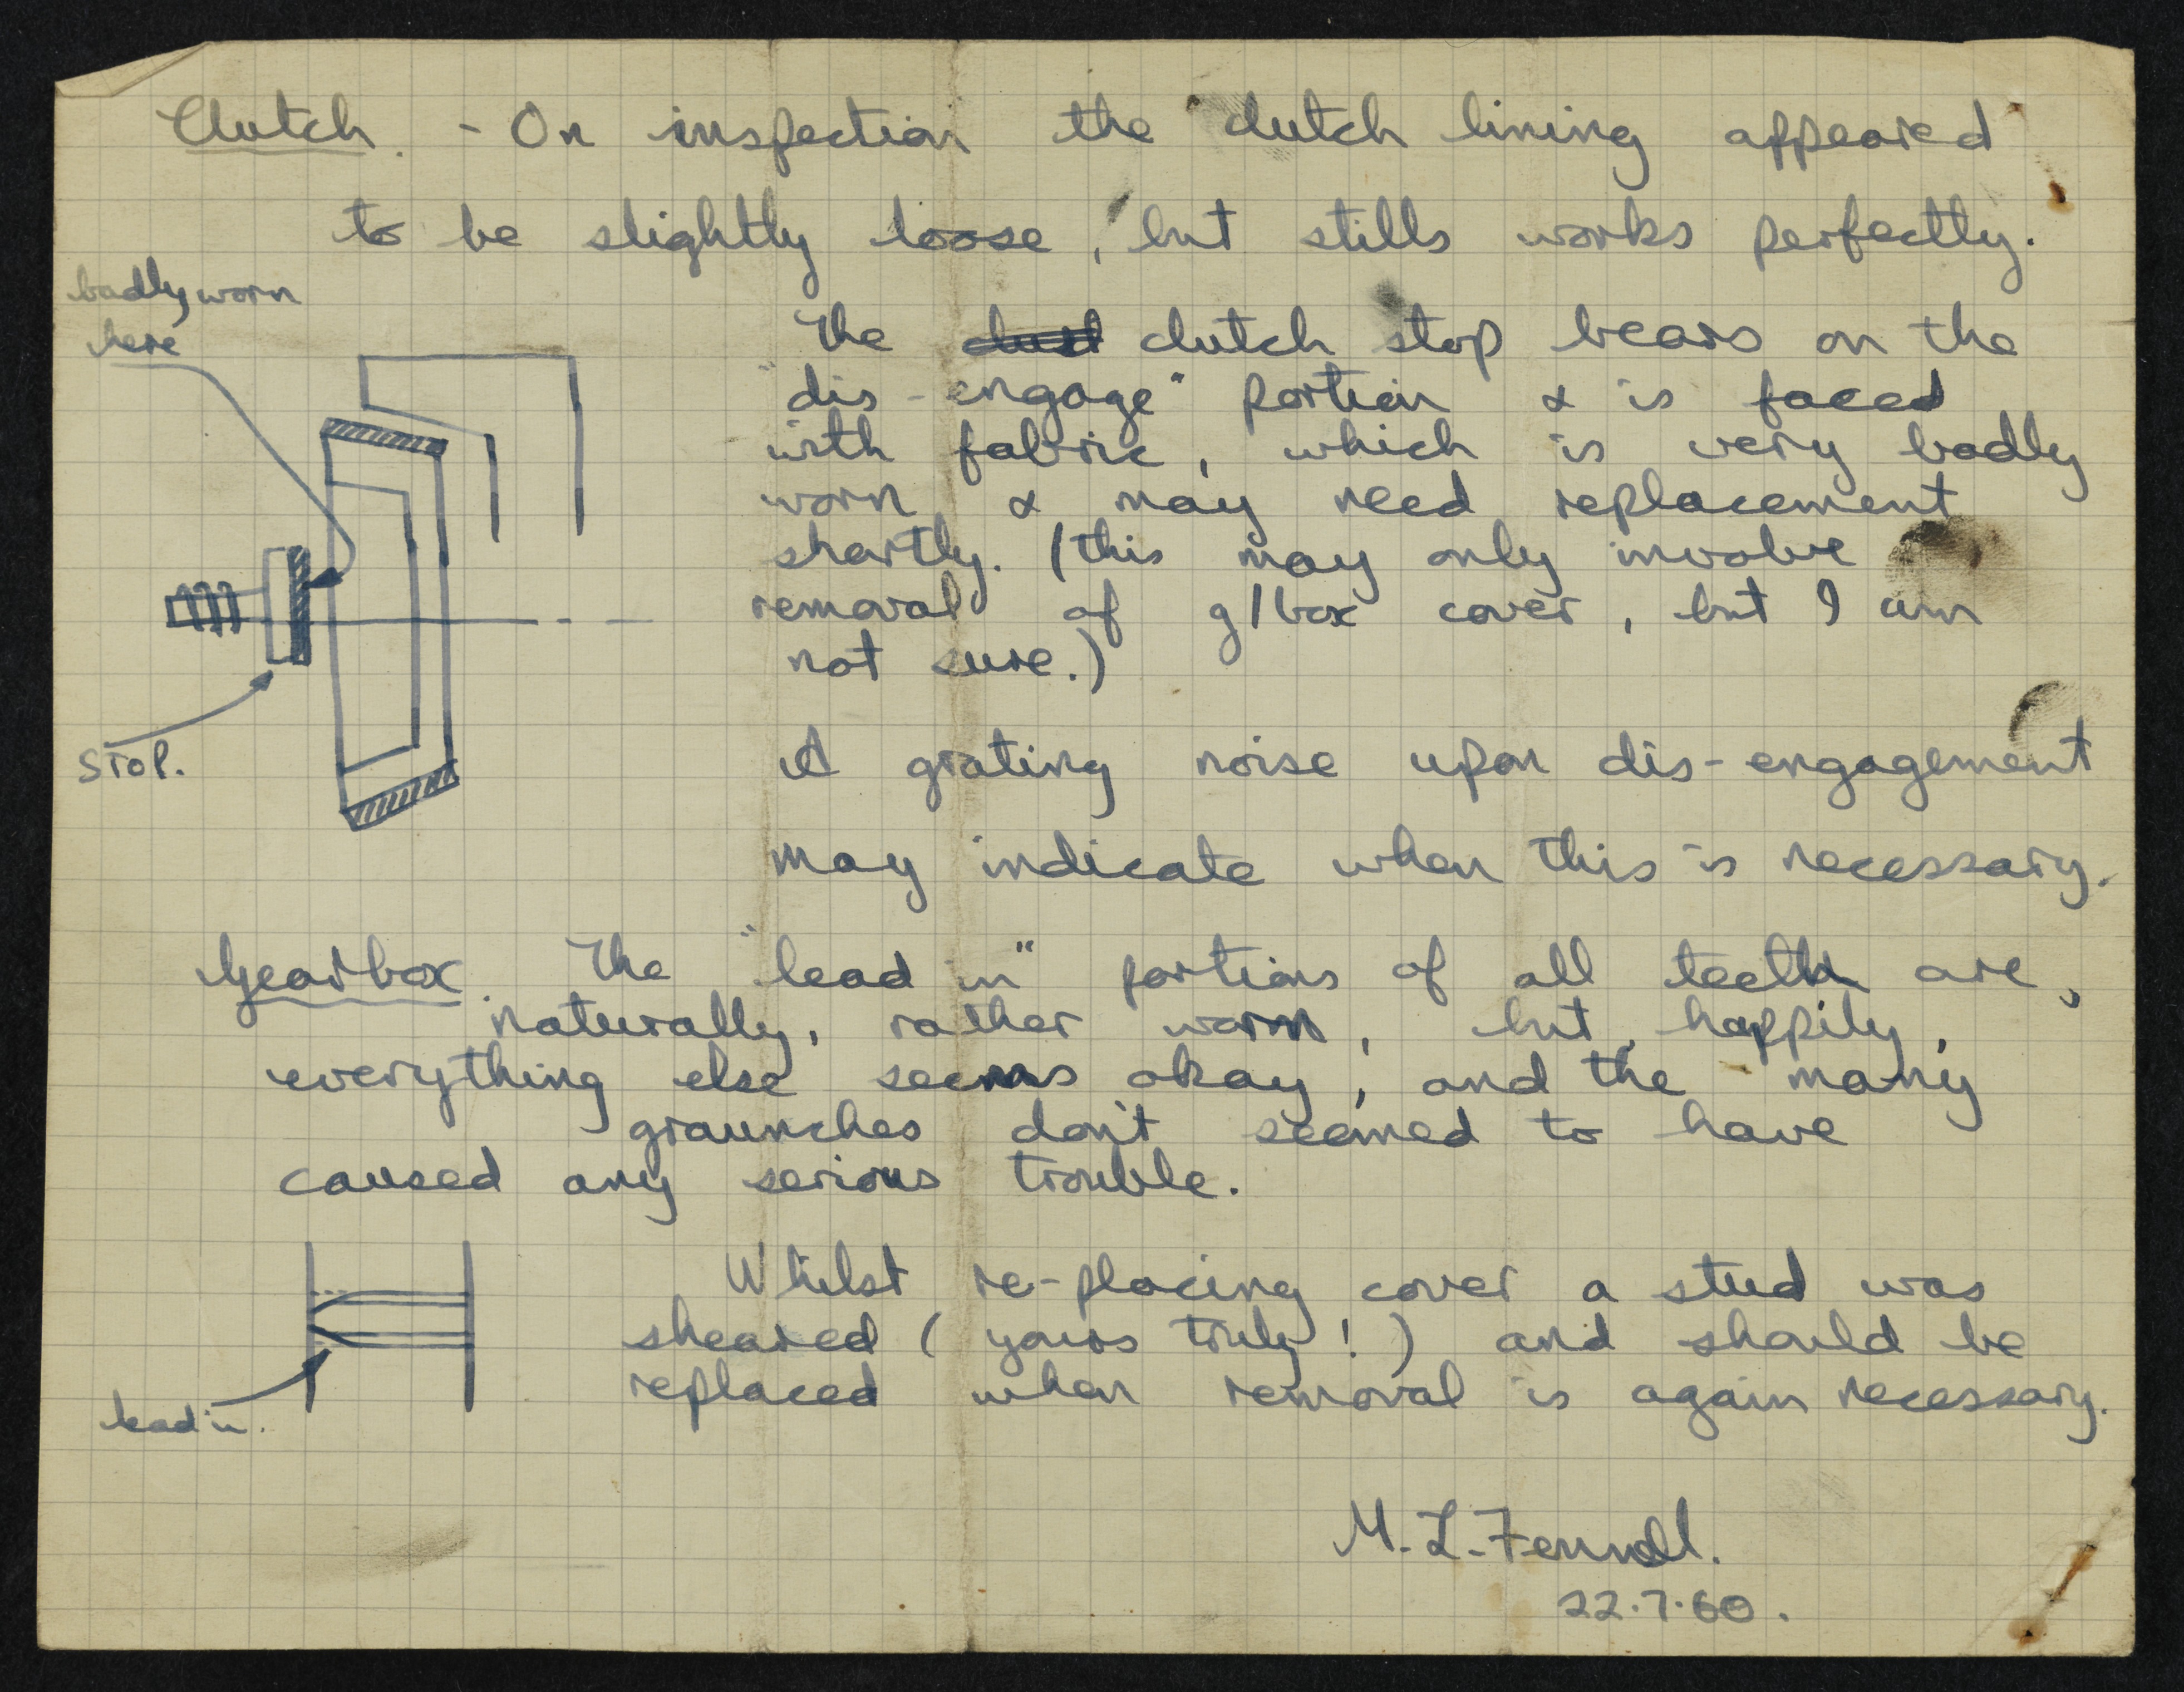 Clutch. - On inspection the clutch lining appeared
to be slightly loose, but stills works perfectly.
badly worn
here
The clutch stop bears on the
"dis-engage" portion & is faced
with fabric, which is very badly
worn & may need replacement
shortly. (this may only involve
removal of g/box cover, but I am
not sure.)
STOP.
A grating noise upon dis-engagement
may indicate when this is necessary.
Gearbox. The "lead in" portions of all teeth are,
naturally, rather worn, but, happily,
everything else seems okay, and the many
graunches don't seemed to have
caused any serious trouble.
Whilst re-placing cover a stud was
sheared (yours truly!) and should be
replaced when removal is again necessary.
lead in.
M. L.
22.7.60.